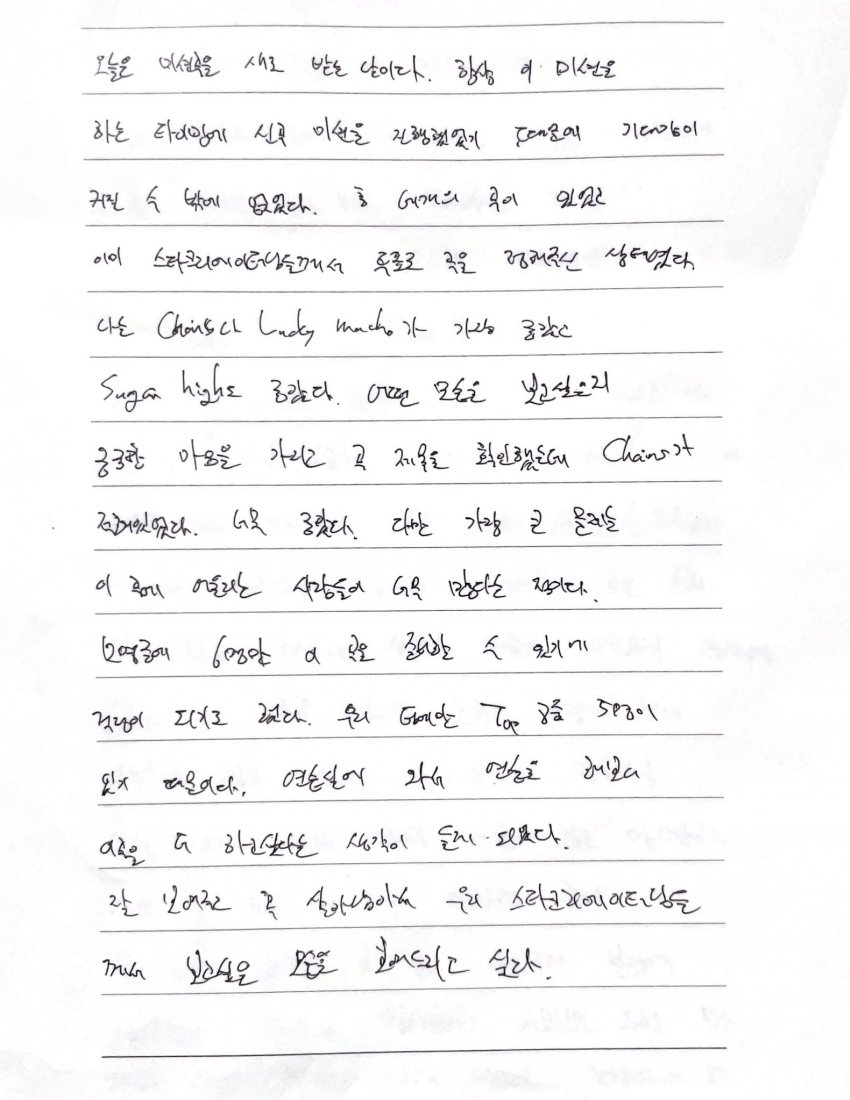 오늘은 미션곡을 새로 받는 날이다. 항상 이 미션을
하는 타이밍에 신곡 미션을 진행했었기 때문에 기대감이
커질 수 밖에 없었다. 총 네개의 곡이 있었고
이미 스타크리에이터님들께서 투표로 곡을 정해주신 상태였다.
나는 Chains나 Lucky macho가 가장 좋았고
Sugar high도 좋았다. 어떤 모습을 보고싶은지
궁금한 마음을 가지고 곡 제목을 확인했는데 Chains가
적혀있었다. 너무 좋았다. 다만 가장 큰 문제는
이 곡에 어울리는 사람들이 너무 많다는 점이다.
12명중에 6명만 이 곡을 할 수 있기에
걱정이 되기도 했다. 우리 팀에만 Top 9중 5명이
있기 때문이다. 연습실에 와서 연습을 해보니
이곡을 더 하고싶다는 생각이 들게 되었다.
잘 보여주고 꼭 살아남아서 우리 스타크리에이터님들
께서 보고싶은 모습을 보여드리고 싶다.